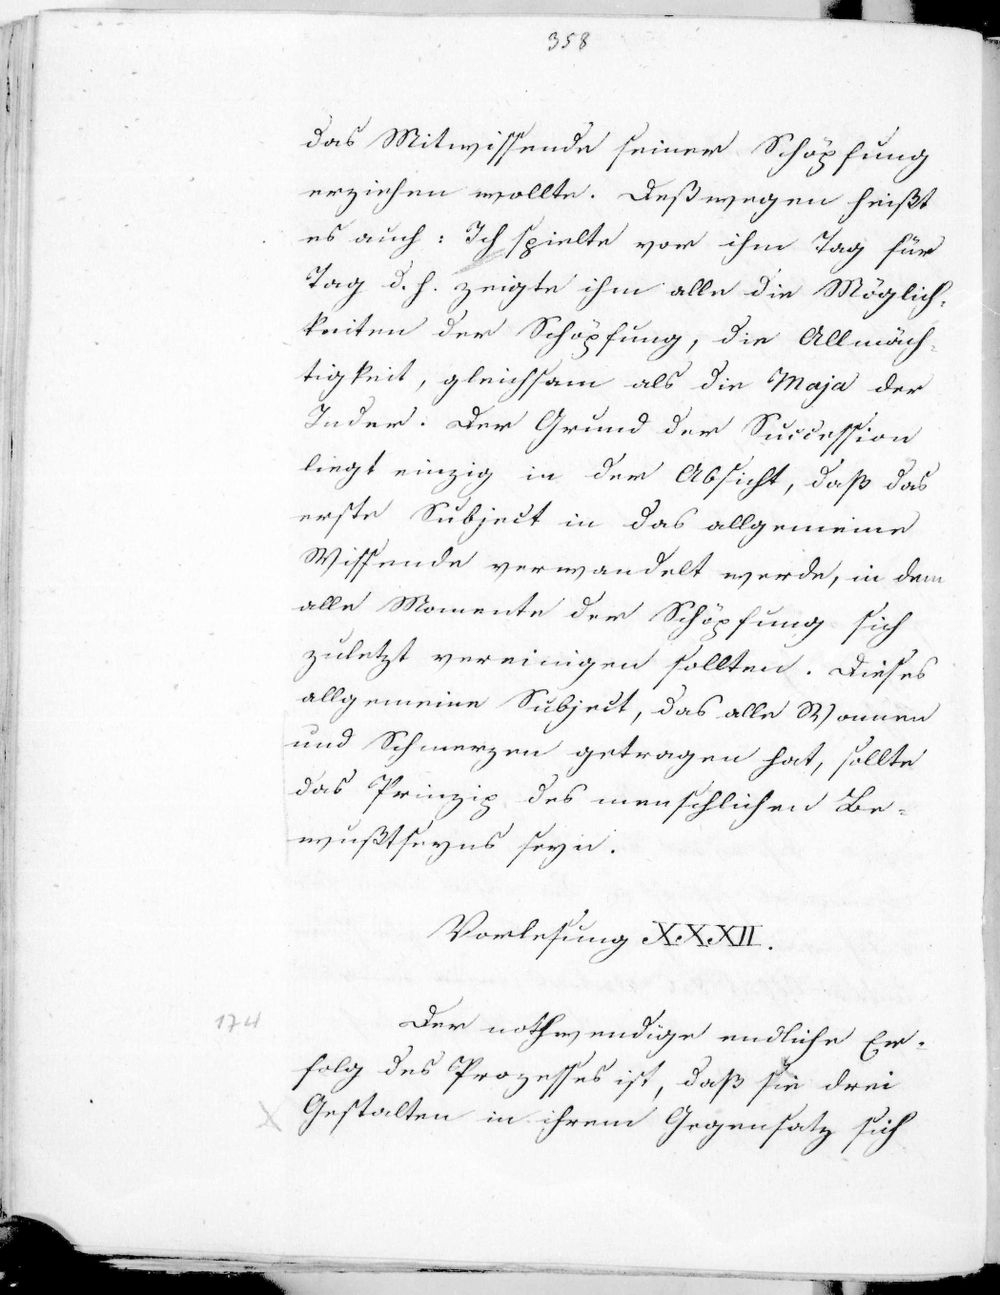 358
das Mitwissende seiner Schöpfung
erziehen wollte. Deßwegen heißt
es auch: Ich spielte vor ihm Tag für
Tag d. h. zeigte ihm alle die Möglich-
keiten der Schöpfung, die Allmäch-
tigkeit, gleichsam als die Maja der
Inder. Der Grund der Succession
liegt einzig in der Absicht, daß das
erste Subject in das allgemeine
Wissende verwandelt werde, in dem
alle Momente der Schöpfung sich
zuletzt vereinigen sollten. Dieses
allgemeine Subject, das alle Wonnen
und Schmerzen getragen hat, sollte
das Prinzip des menschlichen Be-
wußtseyns seyn.
Vorlesung XXXII.
174
Der nothwendige endliche Er-
folg des Prozesses ist, daß sie drei
X Gestalten in ihrem Gegensatz sich